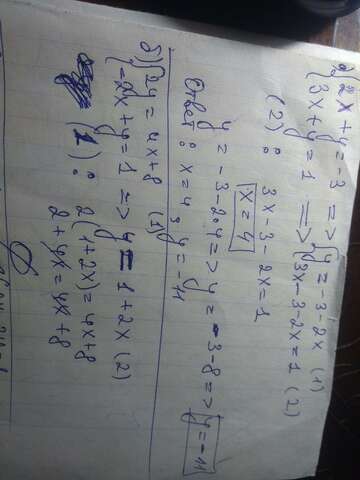 a) { 2x + y = -3 => { y = -3 - 2x (1)
3x + y = 1 => { 3x - 3 - 2x = 1 (2)
(2) : 3x - 3 - 2x = 1
x = 4
y = -3 - 2·4 => y = -3 - 8 => y = -11
Ответ : x = 4, y = -11
б) { 2y = 4x + 8 (1)
-2x + y = 1 => y = 1 + 2x (2)
(1) : 2(1 + 2x) = 4x + 8
2 + 4x = 4x + 8
∅